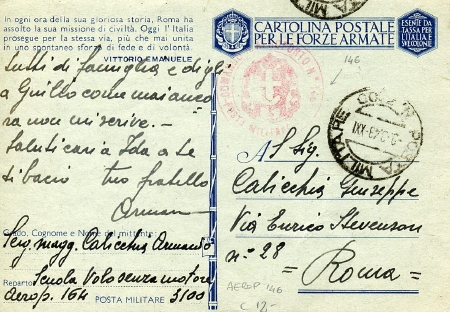 In ogni ora della sua gloriosa storia, Roma ha
assolto la sua missione di civiltà. Oggi l'Italia
prosegue per la stessa via, più che mai unita
in uno spontaneo sforzo di fede e di volontà.
VITTORIO EMANUELE
tutti di famiglia e digli
a Guillo come mai anco
ra non mi scrive.
Saluti cari a Ida a te
ti bacio tuo fratello
Arman
Grado, Cognome e Nome del mittente:
Serg. magg. Calicchia Armando
Reparto Scuola Volo senza motore
Aerop. 164 POSTA MILITARE 3100
CARTOLINA POSTALE
PER LE FORZE ARMATE
ESENTE DA
TASSA PER
L'ITALIA E
SUE COLONIE
146
POSTA MILITARE
A S. Sig.
Calicchia Giuseppe
Via Enrico Stevenson
n° 28
= Roma =
AEROP 146
€ 12,-